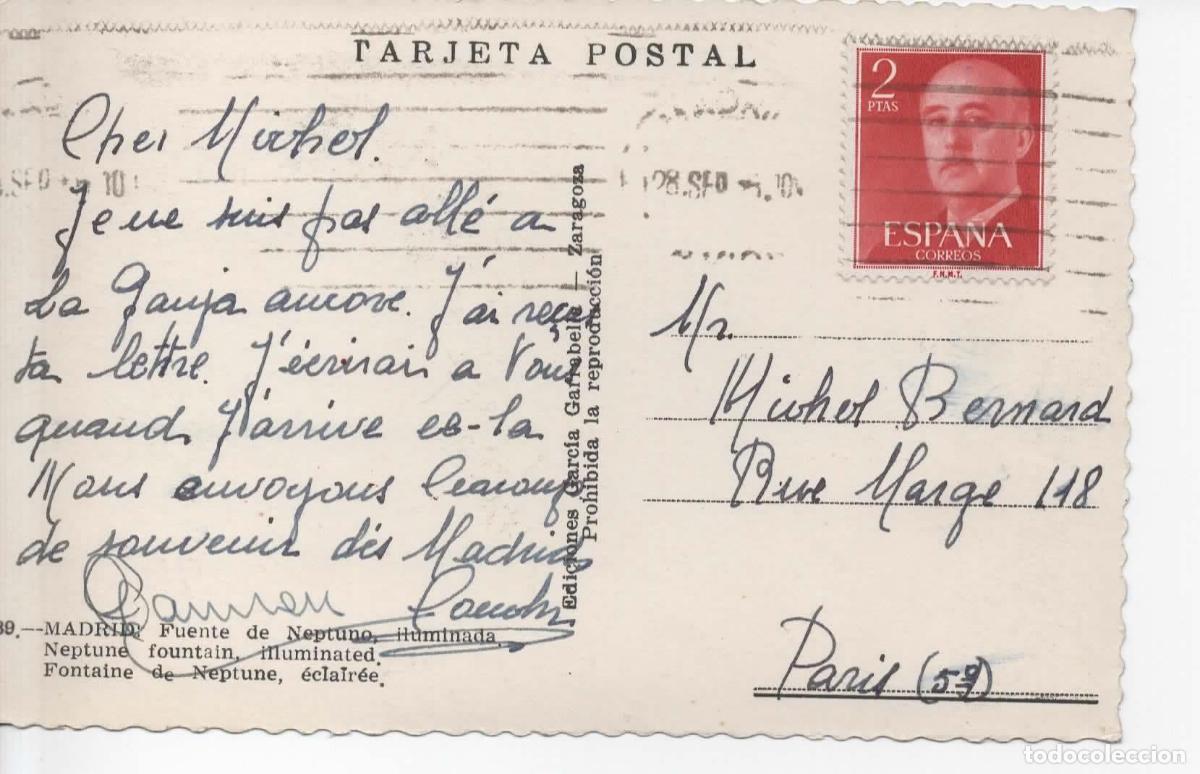 TARJETA POSTAL
2
PTAS
ESPAÑA
CORREOS
F.N.M.T.
28.SEP
10
Cher Michel.
Je ne suis pas allé a
La Ganja ancore. J'ai reçu
ta lettre. J'écrirai a Vous
quand J'arrive es-la
Nous envoyons
de souvenir dés Madrid
39.—MADRID. Fuente de Neptuno, iluminada.
Neptune fountain, illuminated.
Fontaine de Neptune, éclaîrée.
Ediciones García Garrabella — Zaragoza
Prohibida la reproducción
Mr.
Michel Bernard
Rue Marge 118
Paris (5º)
todocoleccion